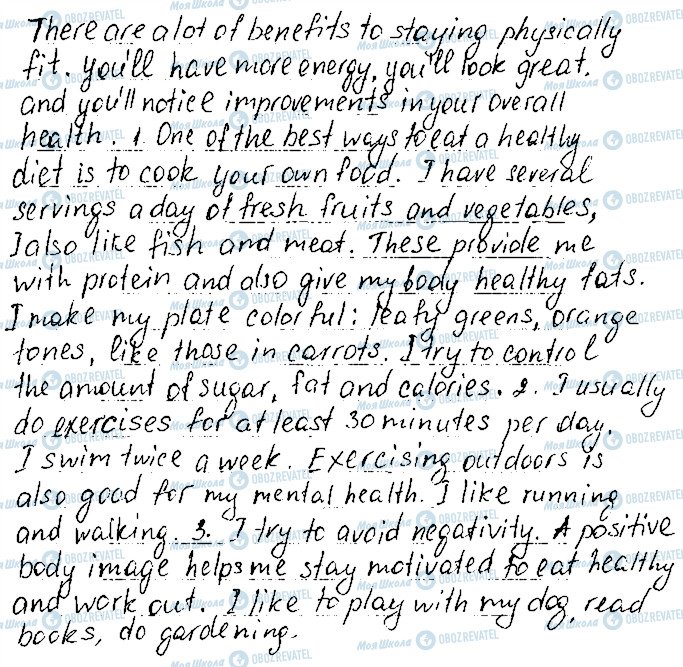 There are a lot of benefits to staying physically
fit. You'll have more energy, you'll look great,
and you'll notice improvements in your overall
health. 1. One of the best ways to eat a healthy
diet is to cook your own food. I have several
servings a day of fresh fruits and vegetables,
I also like fish and meat. These provide me
with protein and also give my body healthy fats.
I make my plate colorful: leafy greens, orange
tones, like those in carrots. I try to control
the amount of sugar, fat and calories. 2. I usually
do exercises for at least 30 minutes per day.
I swim twice a week. Exercising outdoors is
also good for my mental health. I like running
and walking. 3. I try to avoid negativity. A positive
body image helps me stay motivated to eat healthy
and work out. I like to play with my dog, read
books, do gardening.